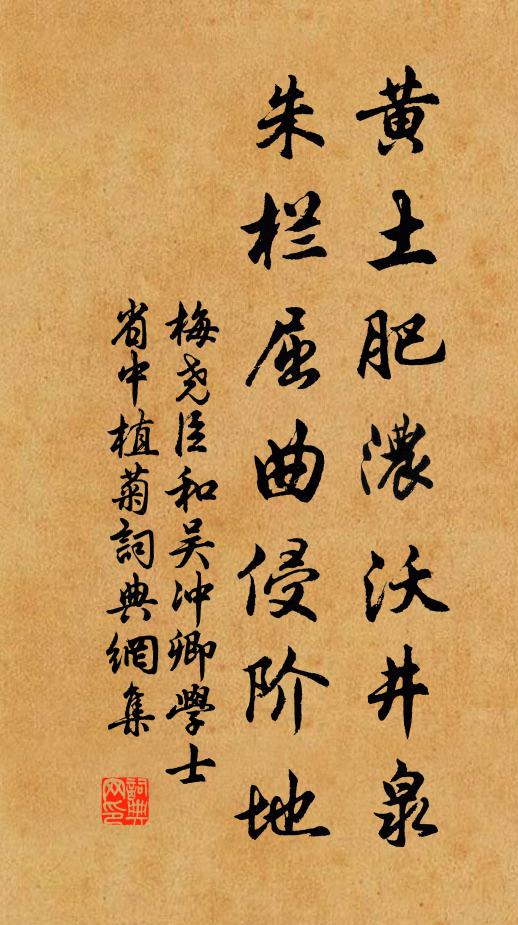 黄土肥濃沃井泉
朱栏屈曲侵阶地
梅尧臣和吴冲卿學士
省中植菊詞典網集
詞典網印